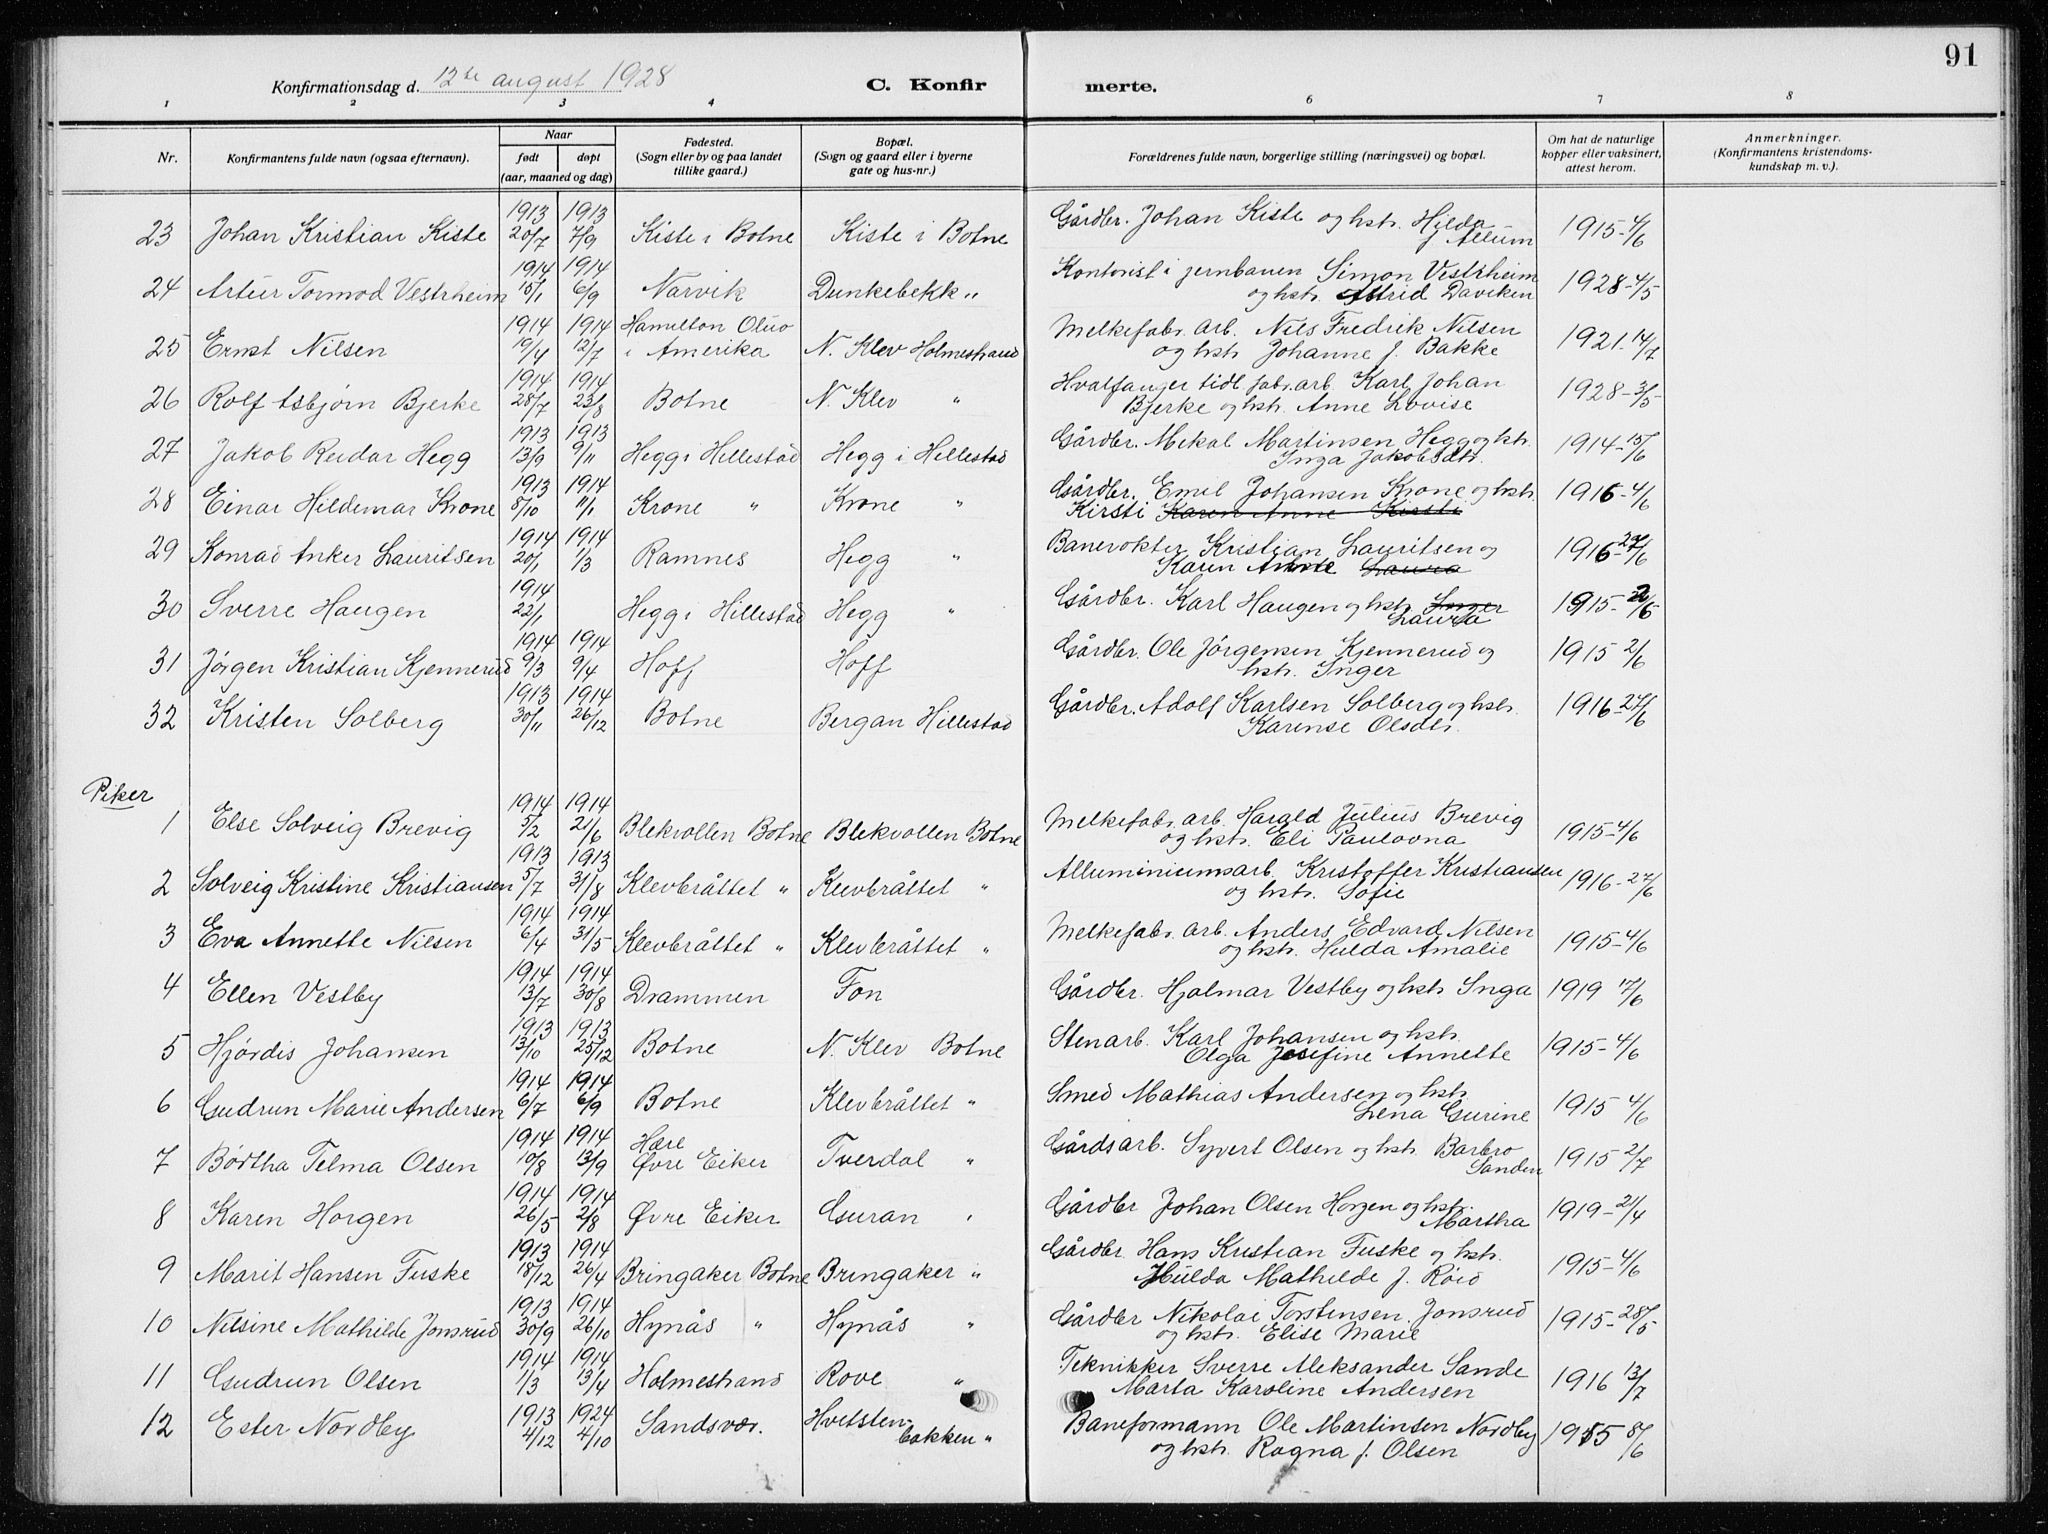 91
Konfirmationsdag d. 12te august 1928 C. Konfirmerte.
1 2 3 4 6 7 8
Nr. Konfirmantens fulde navn (ogsaa efternavn). Naar født døpt (aar, maaned og dag) Fødested. (Sogn eller by og paa landet tillike gaard.) Bopæl. (Sogn og gaard eller i byerne gate og hus-nr.) Forældrenes fulde navn, borgerlige stilling (næringsvei) og bopæl. Om hat de naturlige kopper eller vaksinert, attest herom. Anmerkninger. (Konfirmantens kristendomskundskap m. v.).
23 Johan Kristian Kiste 1913 20/7 1913 7/9 Kiste i Botne Kiste i Botne Gårdbr. Johan Kiste og hstr. Hilda f. Allum 1915-4/6
24 Artur Tormod Vestrheim 1914 15/1 1914 6/9 Narvik Dunkebekk " Kontorist i jernbanen Simon Vestrheim og hstr. Astrid Daviken 1928-4/5
25 Ernst Nilsen 1914 19/4 1914 12/7 Hamilton Oluo i Amerika N. Klev Holmestrand Melkefabr. arb. Nils Fredrik Nilsen og hstr. Johanne f. Bakke 1921-14/7
26 Rolf Asbjørn Bjerke 1914 28/7 1914 23/8 Botne N. Klev " Hvalfanger tidl. fabr. arb. Karl Johan Bjerke og hstr. Anne Lovise 1928-3/5
27 Jakob Reidar Hegg 1913 13/9 1913 9/11 Hegg i Hillestad Hegg i Hillestad Gårdbr. Mekal Martinsen Hegg og hstr. Inga Jakobsdtr. 1914-15/6
28 Einar Hildemar Krone 1913 8/10 1914 11/1 Krone " Krone " Gårdbr. Emil Johansen Krone og hstr. Kirsti Karen Anne Kirsti 1916-4/6
29 Konrad Anker Lauritsen 1914 20/1 1914 1/3 Ramnes Hegg " Banevokter Kristian Lauritsen og Karen Anne Laura 1916-27/6
30 Sverre Haugen 1914 22/1 Hegg i Hillestad Hegg " Gårdbr. Karl Haugen og hstr. Inger Laura 1915-2/6
31 Jørgen Kristian Kjennerud 1914 9/3 1914 9/4 Hoff Hoff Gårdbr. Ole Jørgensen Kjennerud og hstr. Inger 1915 2/6
32 Kristen Solberg 1913 30/11 1914 26/12 Botne Bergan Hillestad Gårdbr. Adolf Karlsen Solberg og hstr. Karense Olsdtr. 1916-27/6
Piker
1 Else Solveig Brevig 1914 5/2 1914 21/6 Blekvollen Botne Blekvollen Botne Melkefabr. arb. Harald Julius Brevig og hstr. Eli Paulovna 1915-4/6
2 Solveig Kristine Kristiansen 1913 5/7 1913 31/8 Klevbråttet " Klevbråttet " Alluminiumsarb. Kristoffer Kristiansen og hstr. Sofie 1916-27/6
3 Eva Annette Nilsen 1914 6/4 1914 31/5 Klevbråttet " Klevbråttet " Melkefabr. arb. Anders Edvard Nilsen og hstr. Hulda Amalie 1915-4/6
4 Ellen Vestby 1914 13/7 1914 30/8 Drammen Fon Gårdbr. Hjalmar Vestby og hstr. Inga 1919 17/6
5 Hjørdis Johansen 1913 13/10 1913 25/12 Botne N. Klev Botne Stenarb. Karl Johansen og hstr. Olga Josefine Annette 1915-4/6
6 Gudrun Marie Andersen 1914 6/7 1914 6/9 Botne Klevbråttet " Smed Mathias Andersen og hstr. Lena Gurine 1915 4/6
7 Børtha Telma Olsen 1914 10/8 1914 13/9 Hære Øvre Eiker Tverdal " Gårdsarb. Syvert Olsen og hstr. Barbro Sanden 1915 2/7
8 Karen Horgen 1914 26/5 1914 2/8 Øvre Eiker Guran " Gårdbr Johan Olsen Horgen og hstr. Martha 1919-21/4
9 Marit Hansen Fuske 1913 18/12 1914 26/4 Bringaker Botne Bringaker " Gårdbr. Hans Kristian Fuske og hstr. Hulda Mathilde f. Røid 1915-4/6
10 Nilsine Mathilde Jonsrud 1913 30/9 1914 26/10 Hynås " Hynås " Gårdbr Nikolai Torstensen Jonsrud og hstr. Elise Marie 1915-28/5
11 Gudrun Olsen 1914 1/3 1914 13/4 Holmestrand Rove " Teknikker Sverre Aleksander Sande Marta Karoline Andersen 1916 13/7
12 Ester Nordby 1913 4/12 1924 4/10 Sandsvær. Hvitsten-bakken " Baneformann Ole Martinsen Nordby og hstr. Ragna f. Olsen 1915 8/6